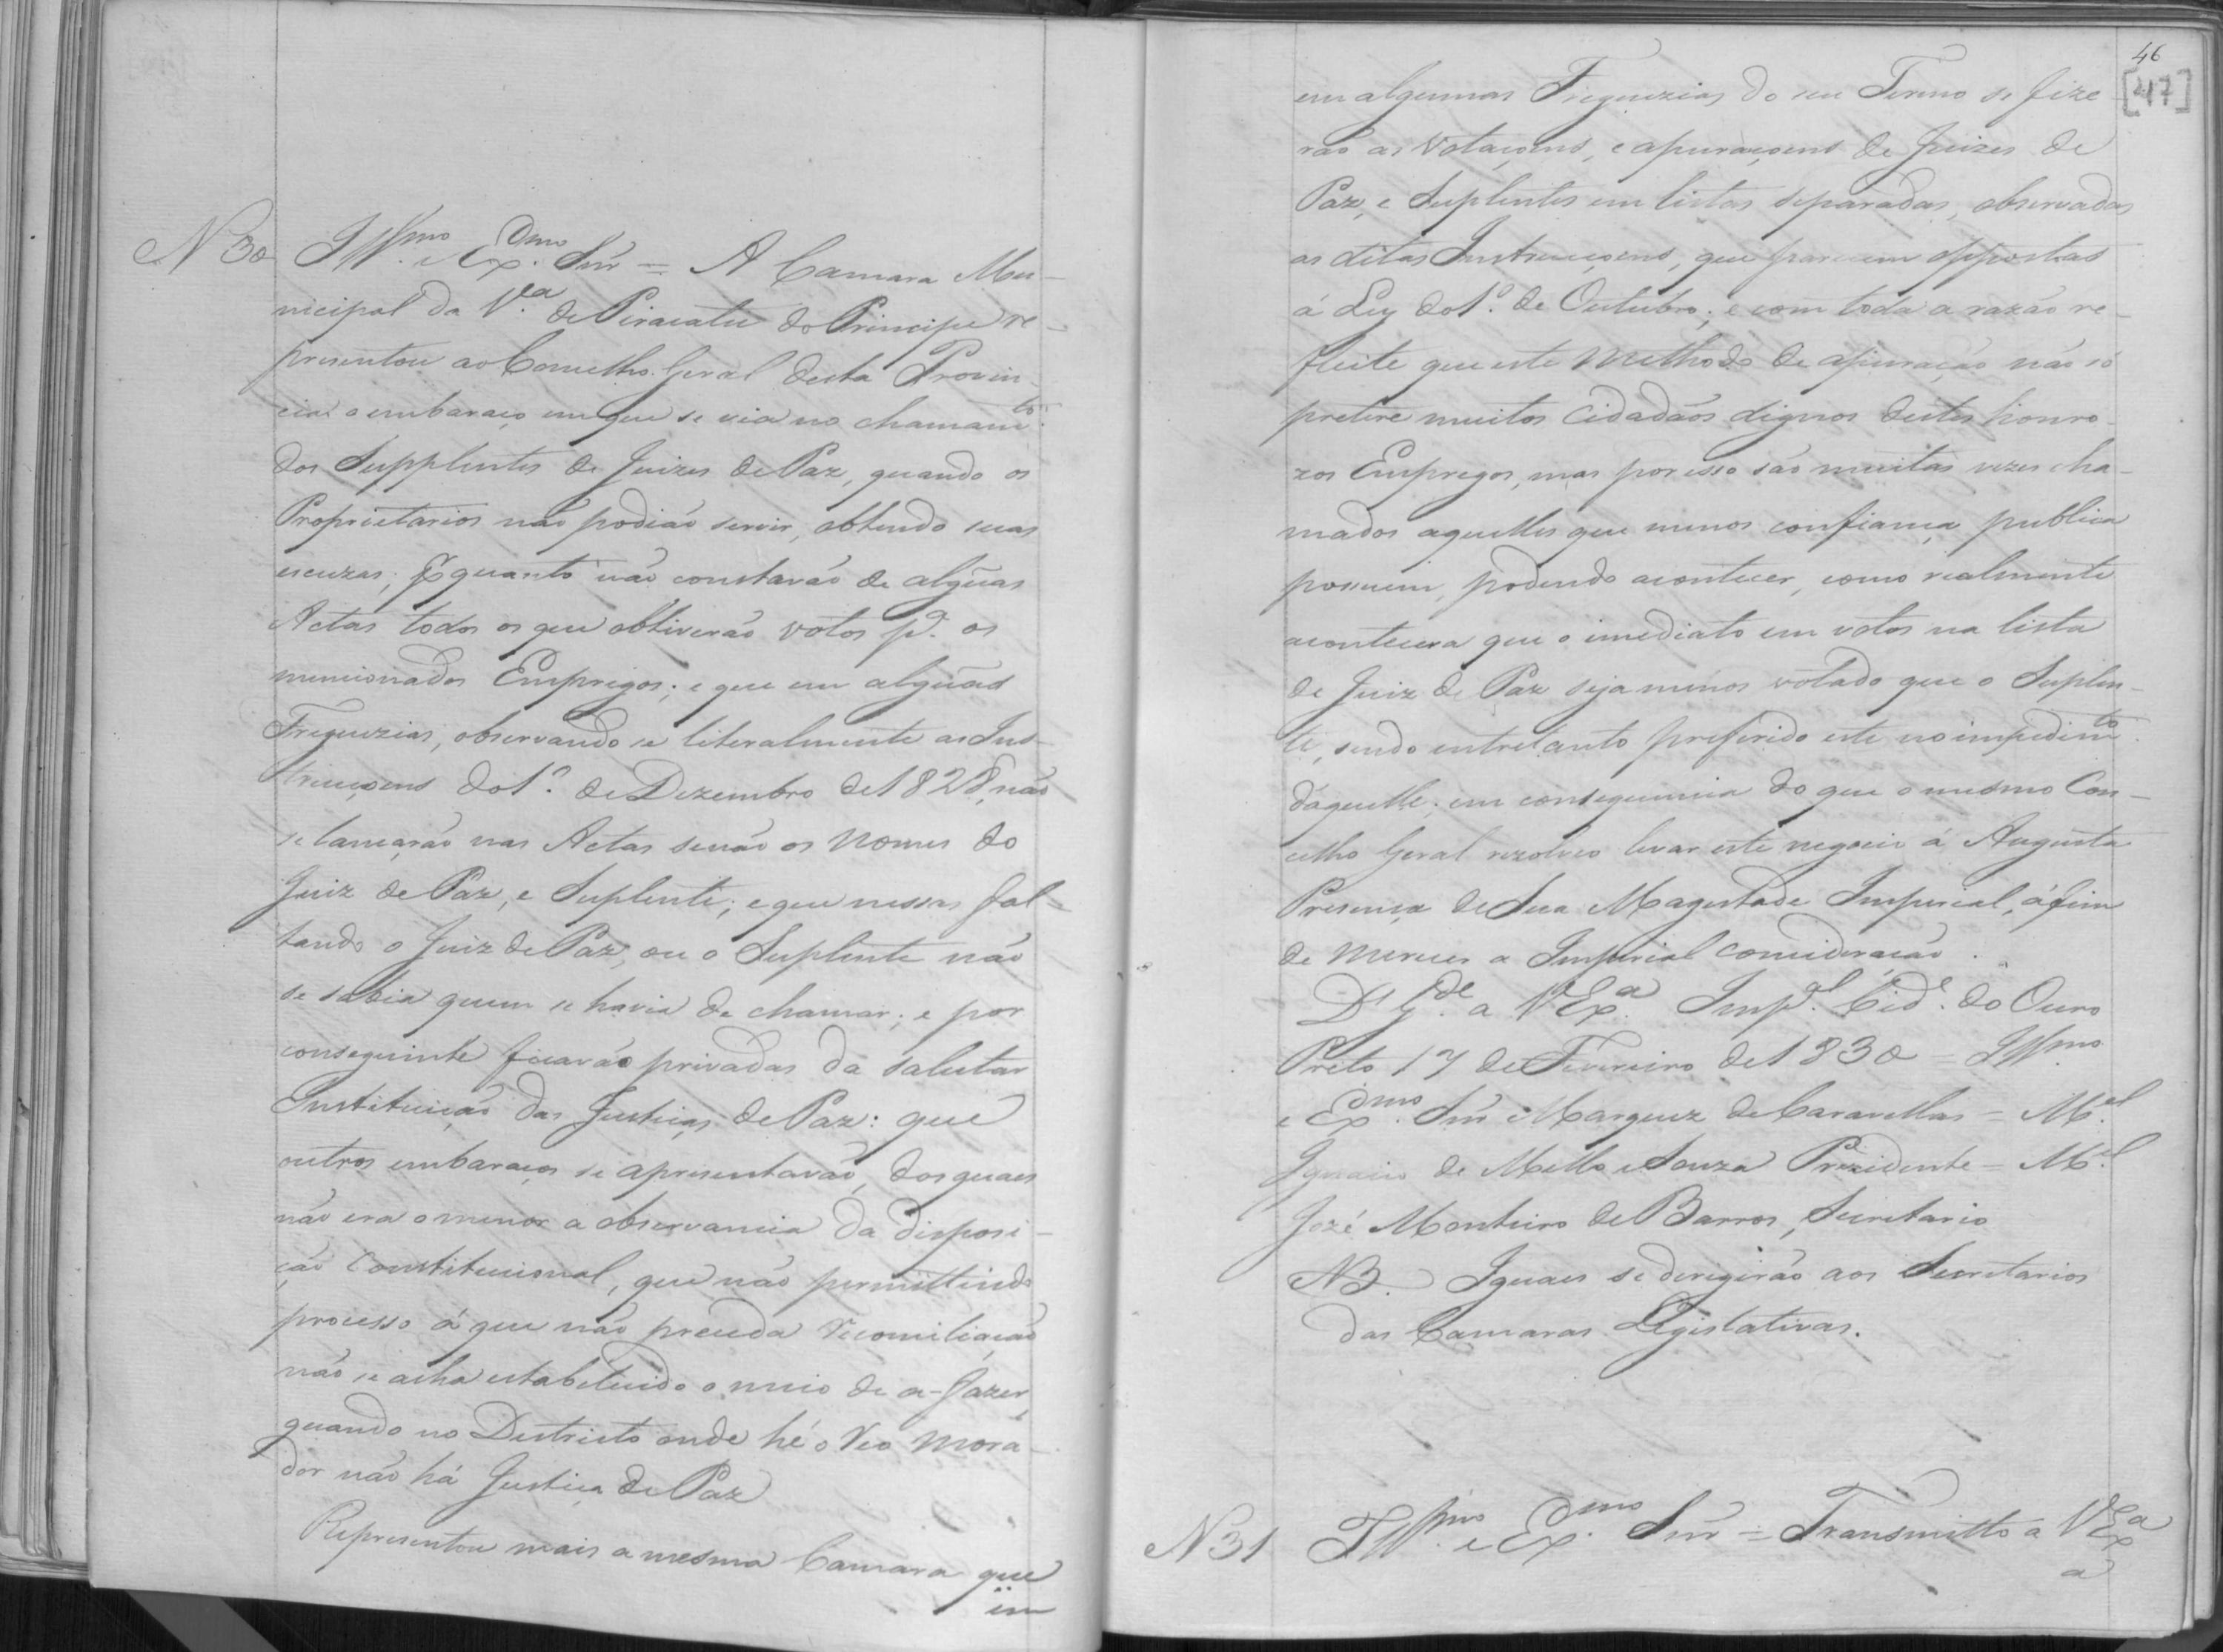 N 30 Ill.mo e Ex.mo Snr = A Camara Mu-
nicipal da V.a de Piracatu do Principe re-
presentou ao Conselho Geral desta Provin-
cia o embaraço em que se via no chamam.to
dos Supplentes de Juizes de Paz, quando os
Proprietarios não podião servir, obtendo suas
escuzas; porquanto não constavão de algũas
Actas todos os que obtiverão votos p.a os
mencionados Empregos; e que em algũas
Freguezias, observando se literalmente as Ins-
trucçoens do 1.o de Dezembro de 1828, não
se lançarão nas Actas senão os nomes do
Juiz de Paz, e Suplente; e que nessas fal-
tando o Juiz de Paz, ou o Suplente não
se sabia quem se havia de chamar; e por
conseguinte ficavão privadas da salutar
Instituição das Justiças de Paz: que
outros embaraços se apresentavão, dos quaes
não era o menor a observancia da disposi-
ção Constitucional, que não permittindo
processo á que não preceda reconciliação
não se acha estabelecido o meio de a-fazer,
quando no Destricto onde hé o Reo mora-
dor não há Justiça de Paz
Representou mais a mesma Camara que
em
46
[47]
em algumas Freguezias do seu Termo se fize-
rão as votaçoens, e apuraçoens de Juizes de
Paz, e Suplentes em listas separadas, observadas
as ditas Instrucçoens, que parecem oppostas
á Ley do 1.o de Outubro; e com toda a razão re-
flecte que este methodo de apuração não só
pretere muitos Cidadãos dignos destes honro-
zos Empregos, mas por isso são muitas vezes cha-
mados aquelles que menos confiança publica
possuem, podendo acontecer, como realmente
acontecera que o imediato em votos na lista
de Juiz de Paz seja menos votado que o Suplen-
te, sendo entretanto preferido este no impedim.to
dáquelle; em consequencia do que o mesmo Con-
celho Geral rezolveo levar este negocio á Augusta
Presença de Sua Magestade Imperial, áfim
de merecer a Imperial consideração.
D.s g.de a V Ex.a Imp.al Cid.e do Ouro
Preto 17 de Fevereiro de 1830 = Ill.mo
e Ex.mo Snr Marquez de Caravellas = M.el
Ignacio de Mello e Souza Prezidente = M.el
Jozé Monteiro de Barros, Secretario
NB. Iguaes se derigirão aos Secretarios
das Camaras Legislativas.
N 31 Ill.mo e Ex.mo Snr = Transmitto a V Ex.a
a